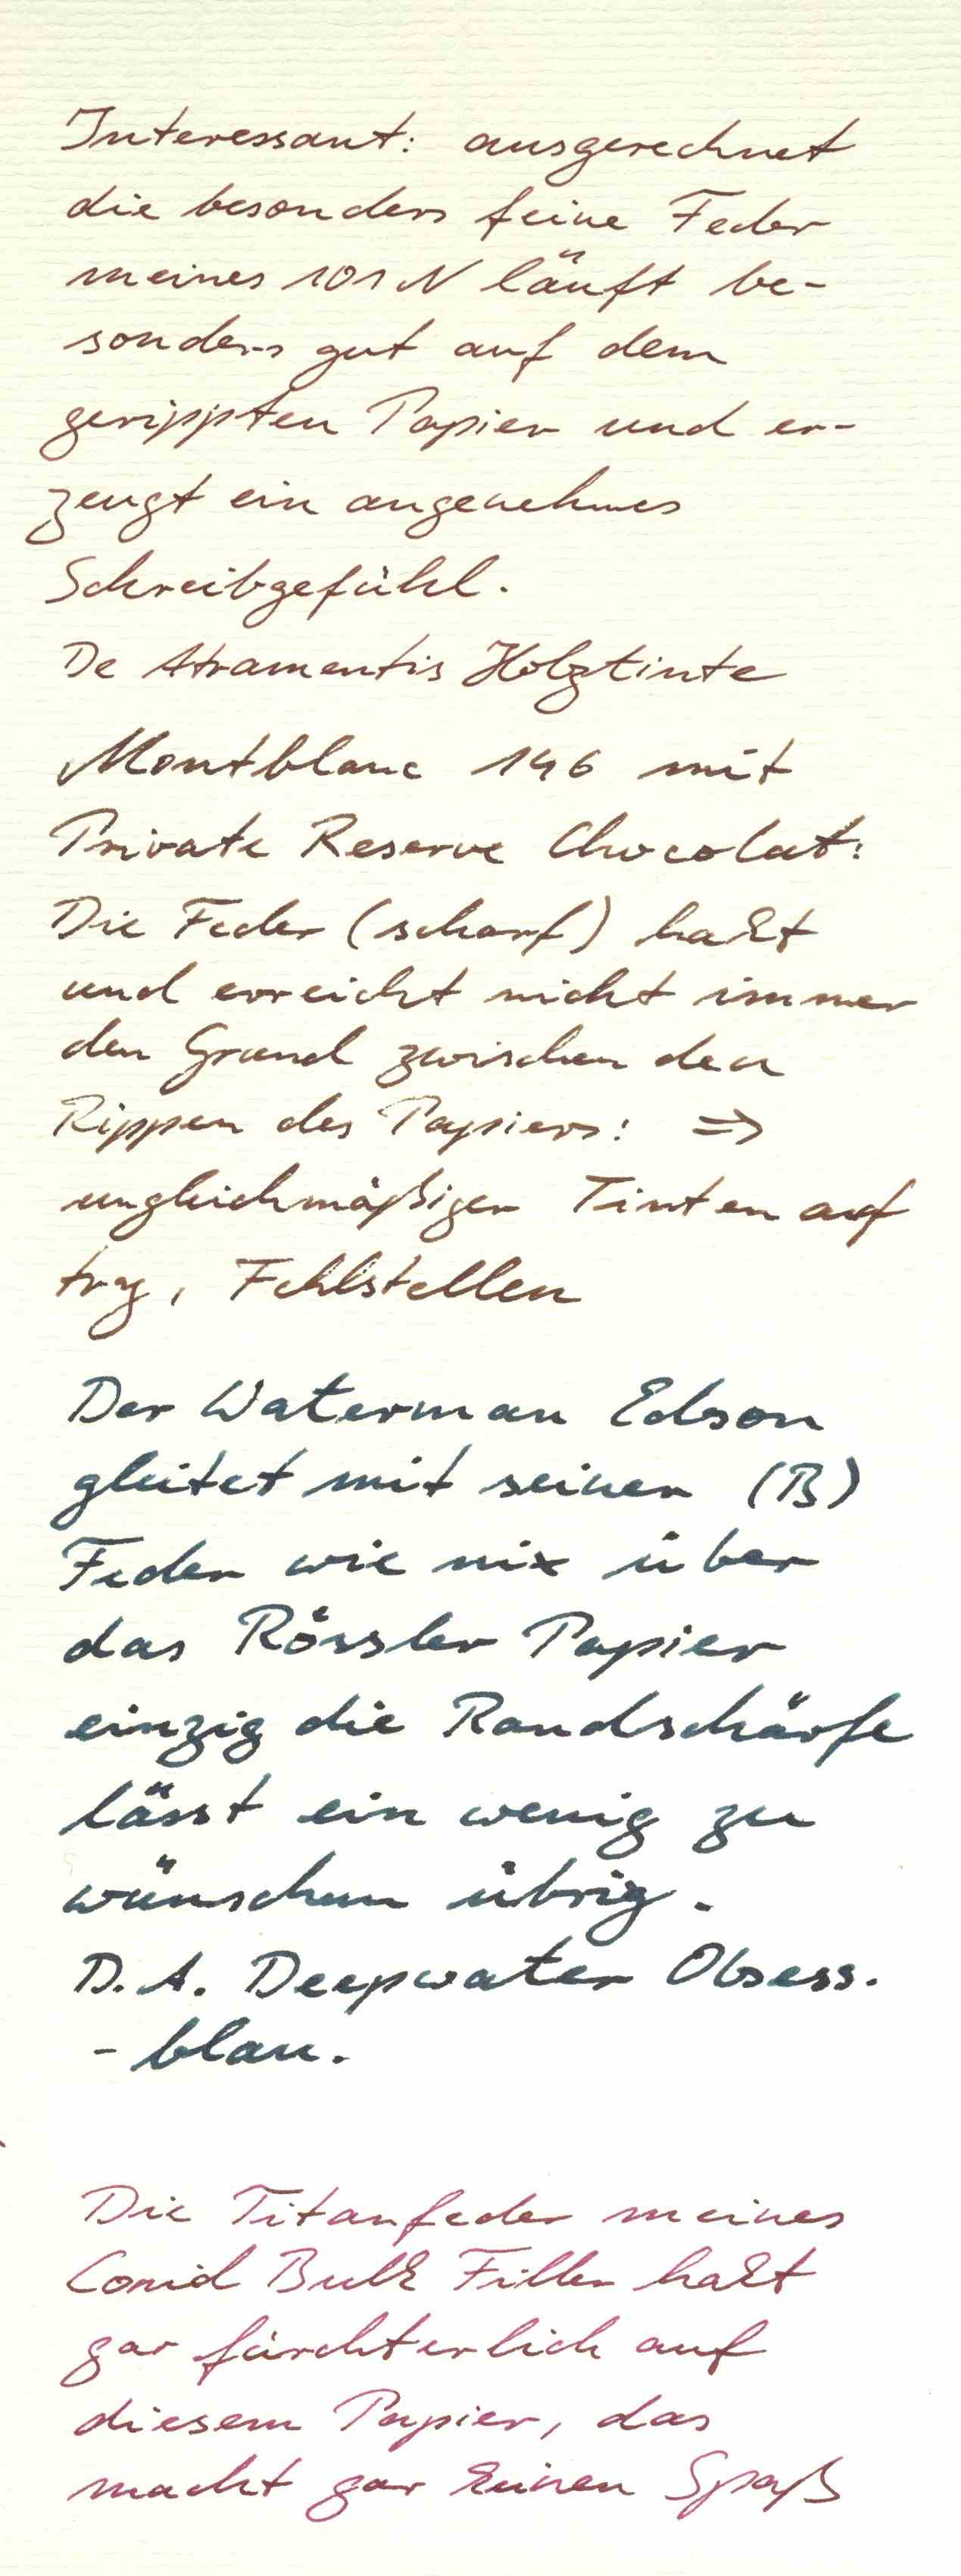 Interessant: ausgerechnet
die besonders feine Feder
meines 101N läuft be-
sonders gut auf dem
gerippten Papier und er-
zeugt ein angenehmes
Schreibgefühl.
De Atramentis Holztinte
Montblanc 146 mit
Private Reserve Chocolat:
Die Feder (scharf) hakt
und erreicht nicht immer
den Grund zwischen den
Rippen des Papiers: =>
ungleichmäßiger Tintenauf
trag, Fehlstellen
Der Waterman Edson
gleitet mit seiner (B)
Feder wie nix über
das Rössler Papier
einzig die Randschärfe
lässt ein wenig zu
wünschen übrig.
D.A. Deepwater Obsess.
- blau.
Die Titanfeder meines
Conid Bulk Filler hakt
gar fürchterlich auf
diesem Papier, das
macht gar keinen Spaß